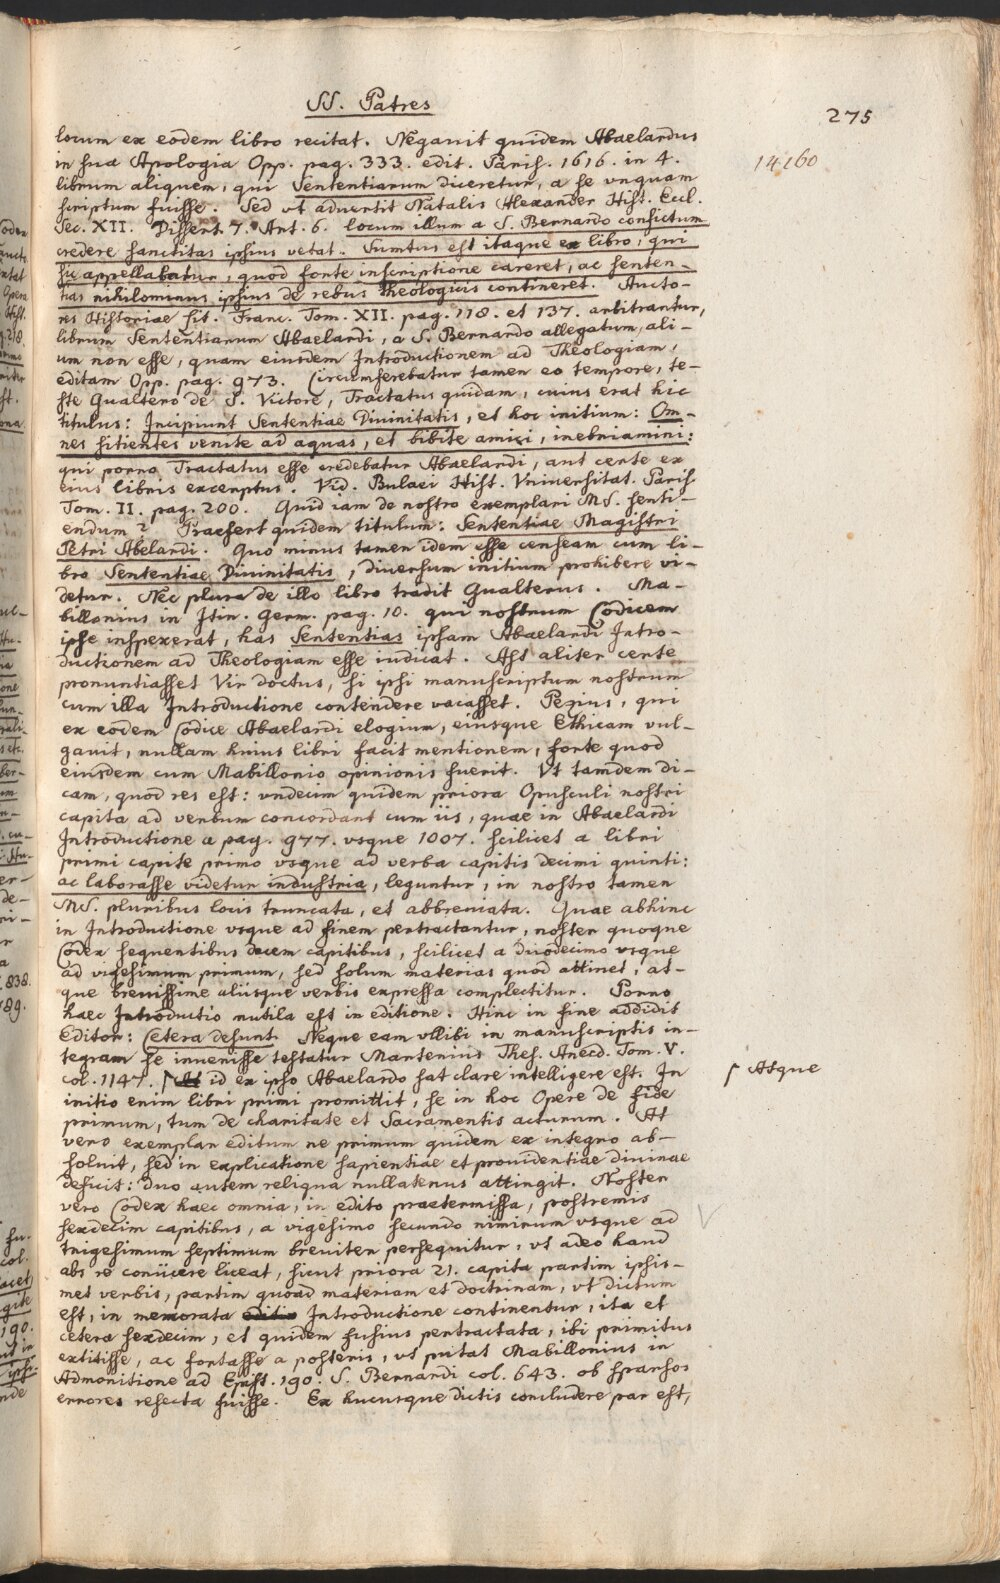 SS. Patres
275
14160
locum ex eodem libro recitat. Negavit quidem Abaelardus
in sua Apologia Opp. pag. 333. edit. Paris. 1616. in 4.
librum aliquem, qui Sententiarum diceretur, a se vnquam
scriptum fuisse. Sed vt advertit Natalis Alexander Hist. Eccl.
Sec. XII. Dissert. 7. Art. 6. locum illum a S. Bernardo confictum
credere sanctitas ipsius vetat. Sumtus est itaque ex libro, qui
sic appellabatur, quod forte inscriptione careret, ac senten-
tias nihilominus ipsius de rebus Theologicis contineret. Aucto-
res Historiae lit. Franc. Tom. XII. pag. 118. et 137. arbitrantur,
librum Sententiarum Abaelardi, a S. Bernardo allegatum, ali-
um non esse, quam eiusdem Introductionem ad Theologiam,
editam Opp. pag. 973. Circumferebatur tamen eo tempore, te-
ste Gualtero de S. Victore, Tractatus quidam, cuius erat hic
titulus: Incipiunt Sententiae Divinitatis, et hoc initium: Om-
nes sitientes venite ad aquas, et bibite amici, inebriamini:
qui porro Tractatus esse credebatur Abaelardi, aut certe ex
eius libris excerptus. Vid. Bulaei Hist. Vniversitat. Paris.
Tom. II. pag. 200. Quid iam de nostro exemplari MS. senti-
endum? Praefert quidem titulum: Sententiae Magistri
Petri Abelardi. Quo minus tamen idem esse censeam cum li-
bro Sententiae Divinitatis, diversum initium prohibere vi-
detur. Nec plura de illo libro tradit Gualterus. Ma-
billonius in Itin. Germ. pag. 10. qui nostrum Codicem
ipse inspexerat, has Sententias ipsam Abaelardi Intro-
ductionem ad Theologiam esse iudicat. Ast aliter certe
pronuntiasset Vir doctus, si ipsi manuscriptum nostrum
cum illa Introductione contendere vacasset. Pezius, qui
ex eodem Codice Abaelardi elogium, eiusque Ethicam vul-
gavit, nullam huius libri facit mentionem, forte quod
eiusdem cum Mabillonio opinionis fuerit. Vt tamdem di-
cam, quod res est: vndecim quidem priora Opusculi nostri
capita ad verbum concordant cum iis, quae in Abaelardi
Introductione a pag. 977. vsque 1007. scilicet a libri
primi capite primo vsque ad verba capitis decimi quinti:
ac laborasse videtur industria, leguntur, in nostro tamen
MS. pluribus locis truncata, et abbreviata. Quae abhinc
in Introductione vsque ad finem pertractantur, noster quoque
Codex sequentibus decem capitibus, scilicet a duodecimo vsque
ad vigesimum primum, sed solum materias quod attinet, at-
que brevissime aliisque verbis expressa complectitur. Porro
haec Introductio mutila est in editione. Hinc in fine addidit
Editor: Cetera desunt. Neque eam vllibi in manuscriptis in-
tegram se invenisse testatur Martenius Thes. Anecd. Tom. V.
col. 1147. At id ex ipso Abaelardo sat clare intelligere est. In
Atque
initio enim libri primi promittit, se in hoc Opere de fide
primum, tum de charitate et Sacramentis acturum. At
vero exemplar editum ne primum quidem ex integro ab-
solvit, sed in explicatione sapientiae et providentiae divinae
deficit: duo autem reliqua nullatenus attingit. Noster
vero Codex haec omnia, in edito praetermissa, postremis
sexdecim capitibus, a vigesimo secundo nimirum vsque ad
trigesimum septimum breviter persequitur, vt adeo haud
abs re coniicere liceat, sicut priora 21. capita partim ipsis-
met verbis, partim quoad materiam et doctrinam, vt dictum
est, in memorata editio Introductione continentur, ita et
cetera sexdecim, et quidem fusius pertractata, ibi primitus
extitisse, ac fortasse a posteris, vt putat Mabillonius in
Admonitione ad Epist. 190. S. Bernardi col. 643. ob sparsos
errores resecta fuisse. Ex hucusque dictis concludere par est,